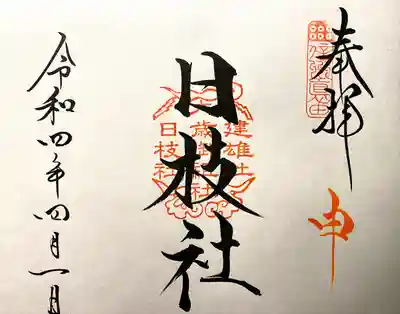 奉拝
申
日枝社
建雄社
日枝社
令和四年四月一日